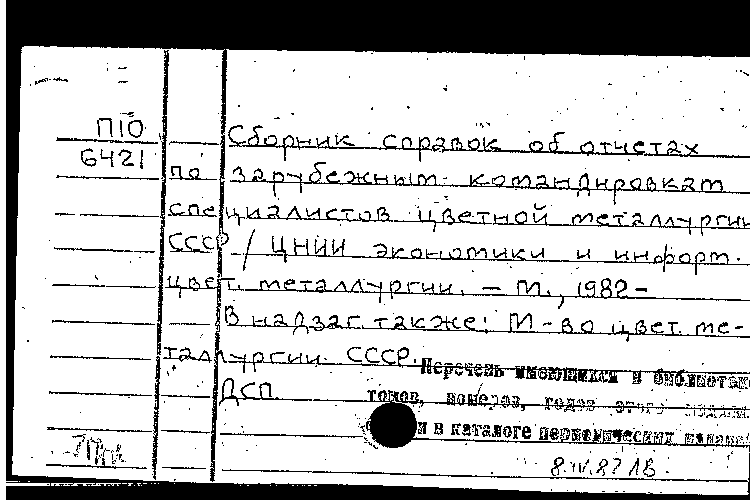 П10
6421
Сборник справок об отчетах
по зарубежным командировкам
специалистов цветной металлургии
СССР / ЦНИИ экономики и информ.
цвет. металлургии. – М., 1982–
В надзаг. также: М-во цвет. ме-
таллургии СССР.
ДСП
Перечень имеющихся в библиотеке
томов, номеров, годов этого издания
в каталоге периодических издани
8.IV.83 ЛВ.